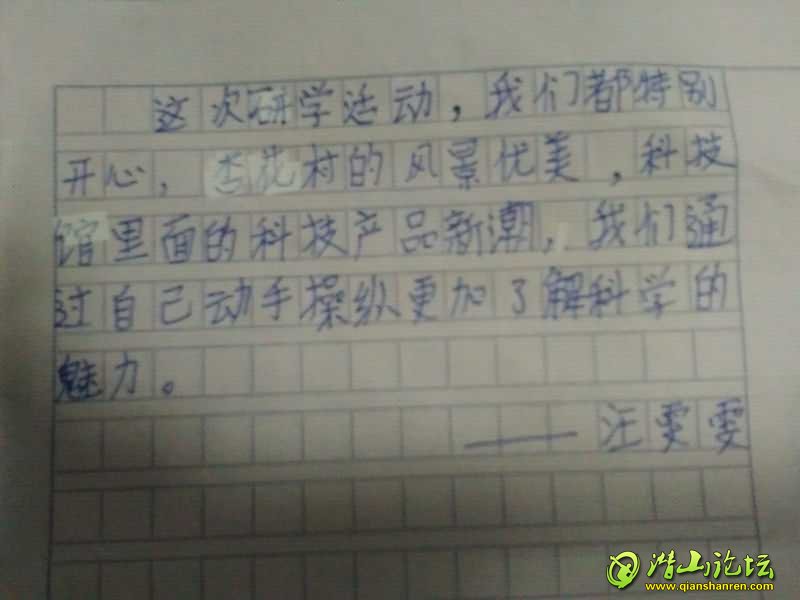 这次研学活动，我们都特别
开心，杏花村的风景优美，科技
馆里面的科技产品新潮，我们通
过自己动手操纵更加了解科学的
魅力。
——汪雯雯
潜山论坛
www.qianshanren.com